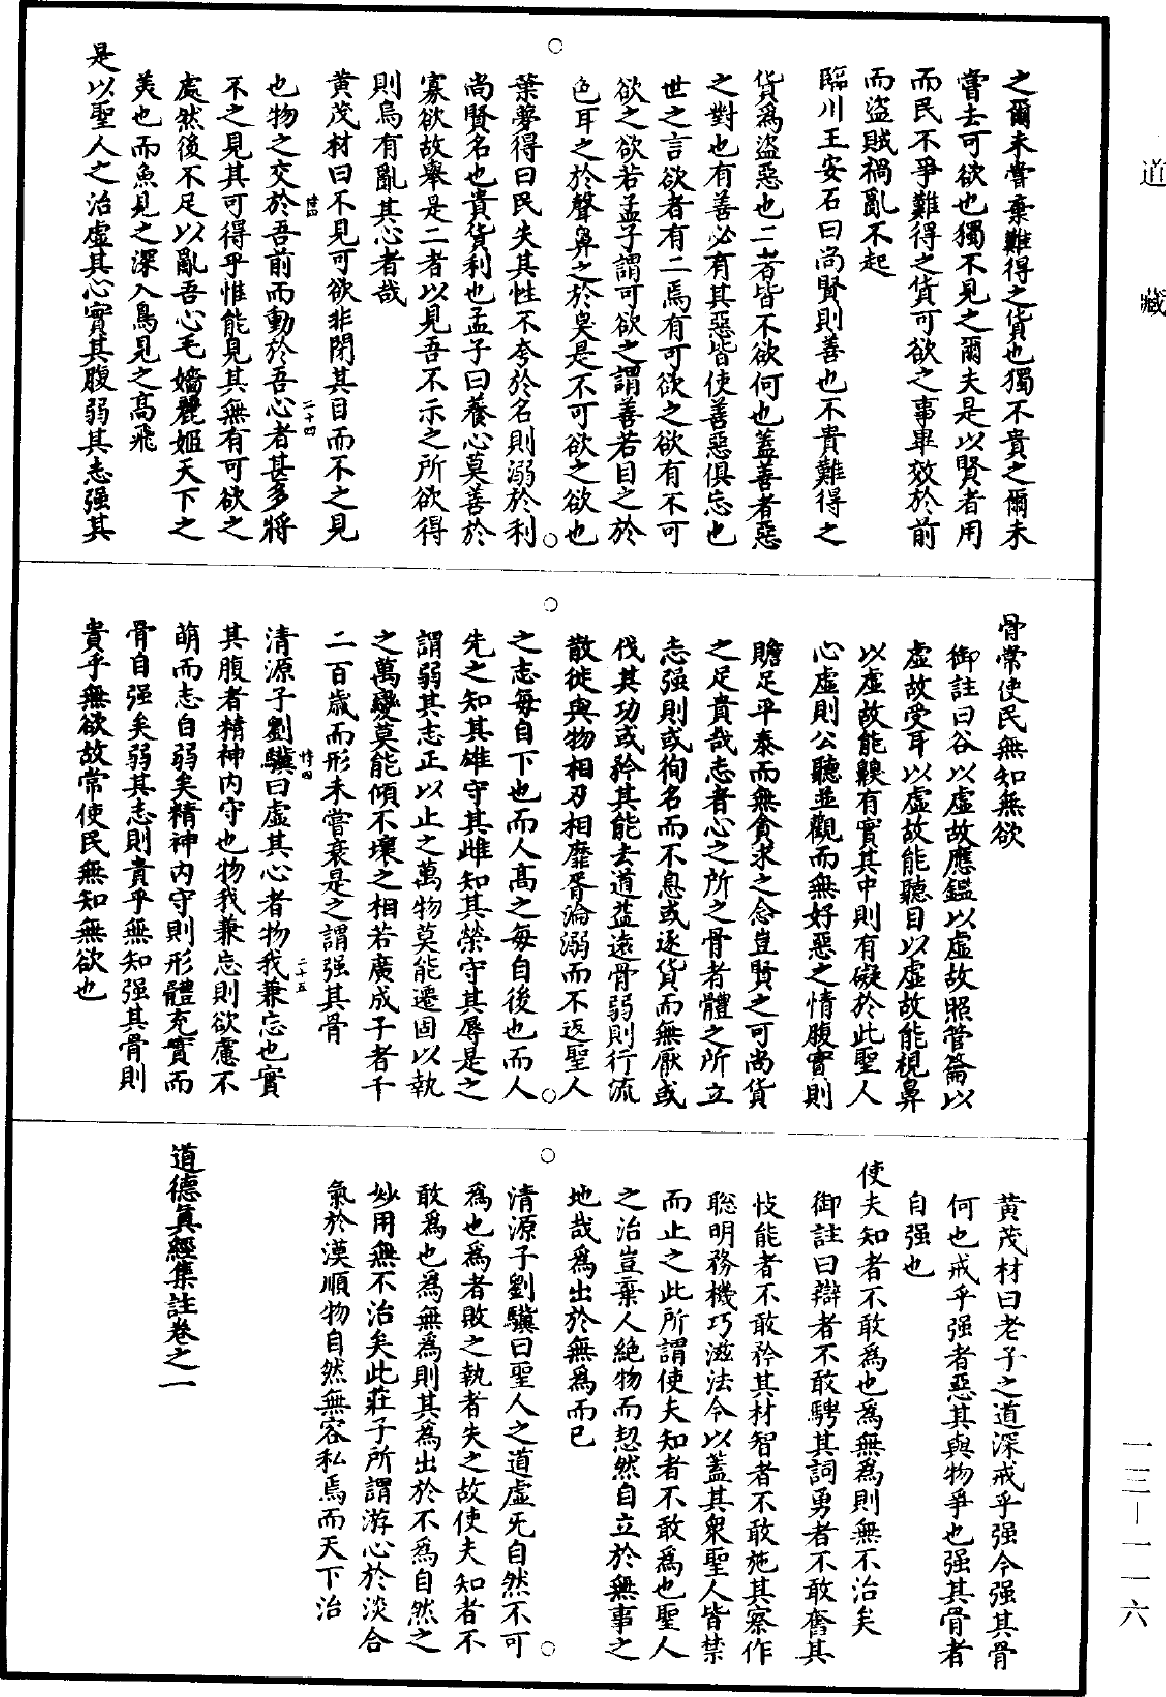 道藏
之爾未嘗棄難得之貨也獨不貴之爾未
嘗去可欲也獨不見之爾夫是以賢者用
而民不爭難得之貨可欲之事畢效於前
而盜賊禍亂不起
臨川王安石曰尚賢則善也不貴難得之
貨爲盜惡也二者皆不欲何也蓋善者惡
之對也有善必有其惡皆使善惡俱忘也
世之言欲者有二焉有可欲之欲有不可
欲之欲若孟子謂可欲之謂善若目之於
色耳之於聲鼻之於臭是不可欲之欲也
葉夢得曰民失其性不夸於名則溺於利
尚賢名也貴貨利也孟子曰養心莫善於
寡欲故舉是二者以見吾不示之所欲得
則烏有亂其心者哉
黃茂材曰不見可欲非閉其目而不之見
也物之交於吾前而動於吾心者甚多將
不之見其可得乎惟能見其無有可欲之
處然後不足以亂吾心毛嬙麗姬天下之
美也而魚見之深入鳥見之高飛
是以聖人之治虛其心實其腹弱其志强其
二十四
骨常使民無知無欲
御註曰谷以虛故應鑑以虛故照管籥以
虛故受耳以虛故能聽目以虛故能視鼻
以虛故能齅有實其中則有礙於此聖人
心虛則公聽並觀而無好惡之情腹實則
贍足平泰而無貪求之念豈賢之可尚貨
之足貴哉志者心之所之骨者體之所立
志强則或徇名而不息或逐貨而無厭或
伐其功或矜其能去道益遠骨弱則行流
散徙與物相刃相靡胥淪溺而不返聖人
之志每自下也而人高之每自後也而人
先之知其雄守其雌知其榮守其辱是之
謂弱其志正以止之萬物莫能遷固以執
之萬變莫能傾不壞之相若廣成子者千
二百歲而形未嘗衰是之謂强其骨
清源子劉驥曰虛其心者物我兼忘也實
其腹者精神内守也物我兼忘則欲慮不
萌而志自弱矣精神内守則形體充實而
骨自强矣弱其志則貴乎無知强其骨則
貴乎無欲故常使民無知無欲也
二十五
黃茂材曰老子之道深戒乎强今强其骨
何也戒乎强者惡其與物爭也强其骨者
自强也
使夫知者不敢爲也爲無爲則無不治矣
御註曰辯者不敢騁其詞勇者不敢奮其
忮能者不敢矜其材智者不敢施其察作
聰明務機巧滋法令以蓋其衆聖人皆禁
而止之此所謂使夫知者不敢爲也聖人
之治豈棄人絶物而恝然自立於無事之
地哉爲出於無爲而已
清源子劉驥曰聖人之道虛无自然不可
爲也爲者敗之執者失之故使夫知者不
敢爲也爲無爲則其爲出於不爲自然之
妙用無不治矣此莊子所謂游心於淡合
氣於漠順物自然無容私焉而天下治
道德眞經集註卷之一
一三—一一六